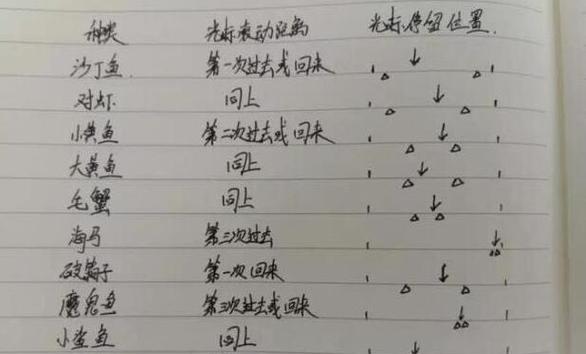 种类 光标滚动距离 光标停留位置
沙丁鱼 第一次过去或回来
对虾 同上
小黄鱼 第二次过去或回来
大黄鱼 同上
毛蟹 同上
海马 第三次过去
破鞋子 第一次回来
魔鬼鱼 第三次过去或回来
小鲨鱼 同上